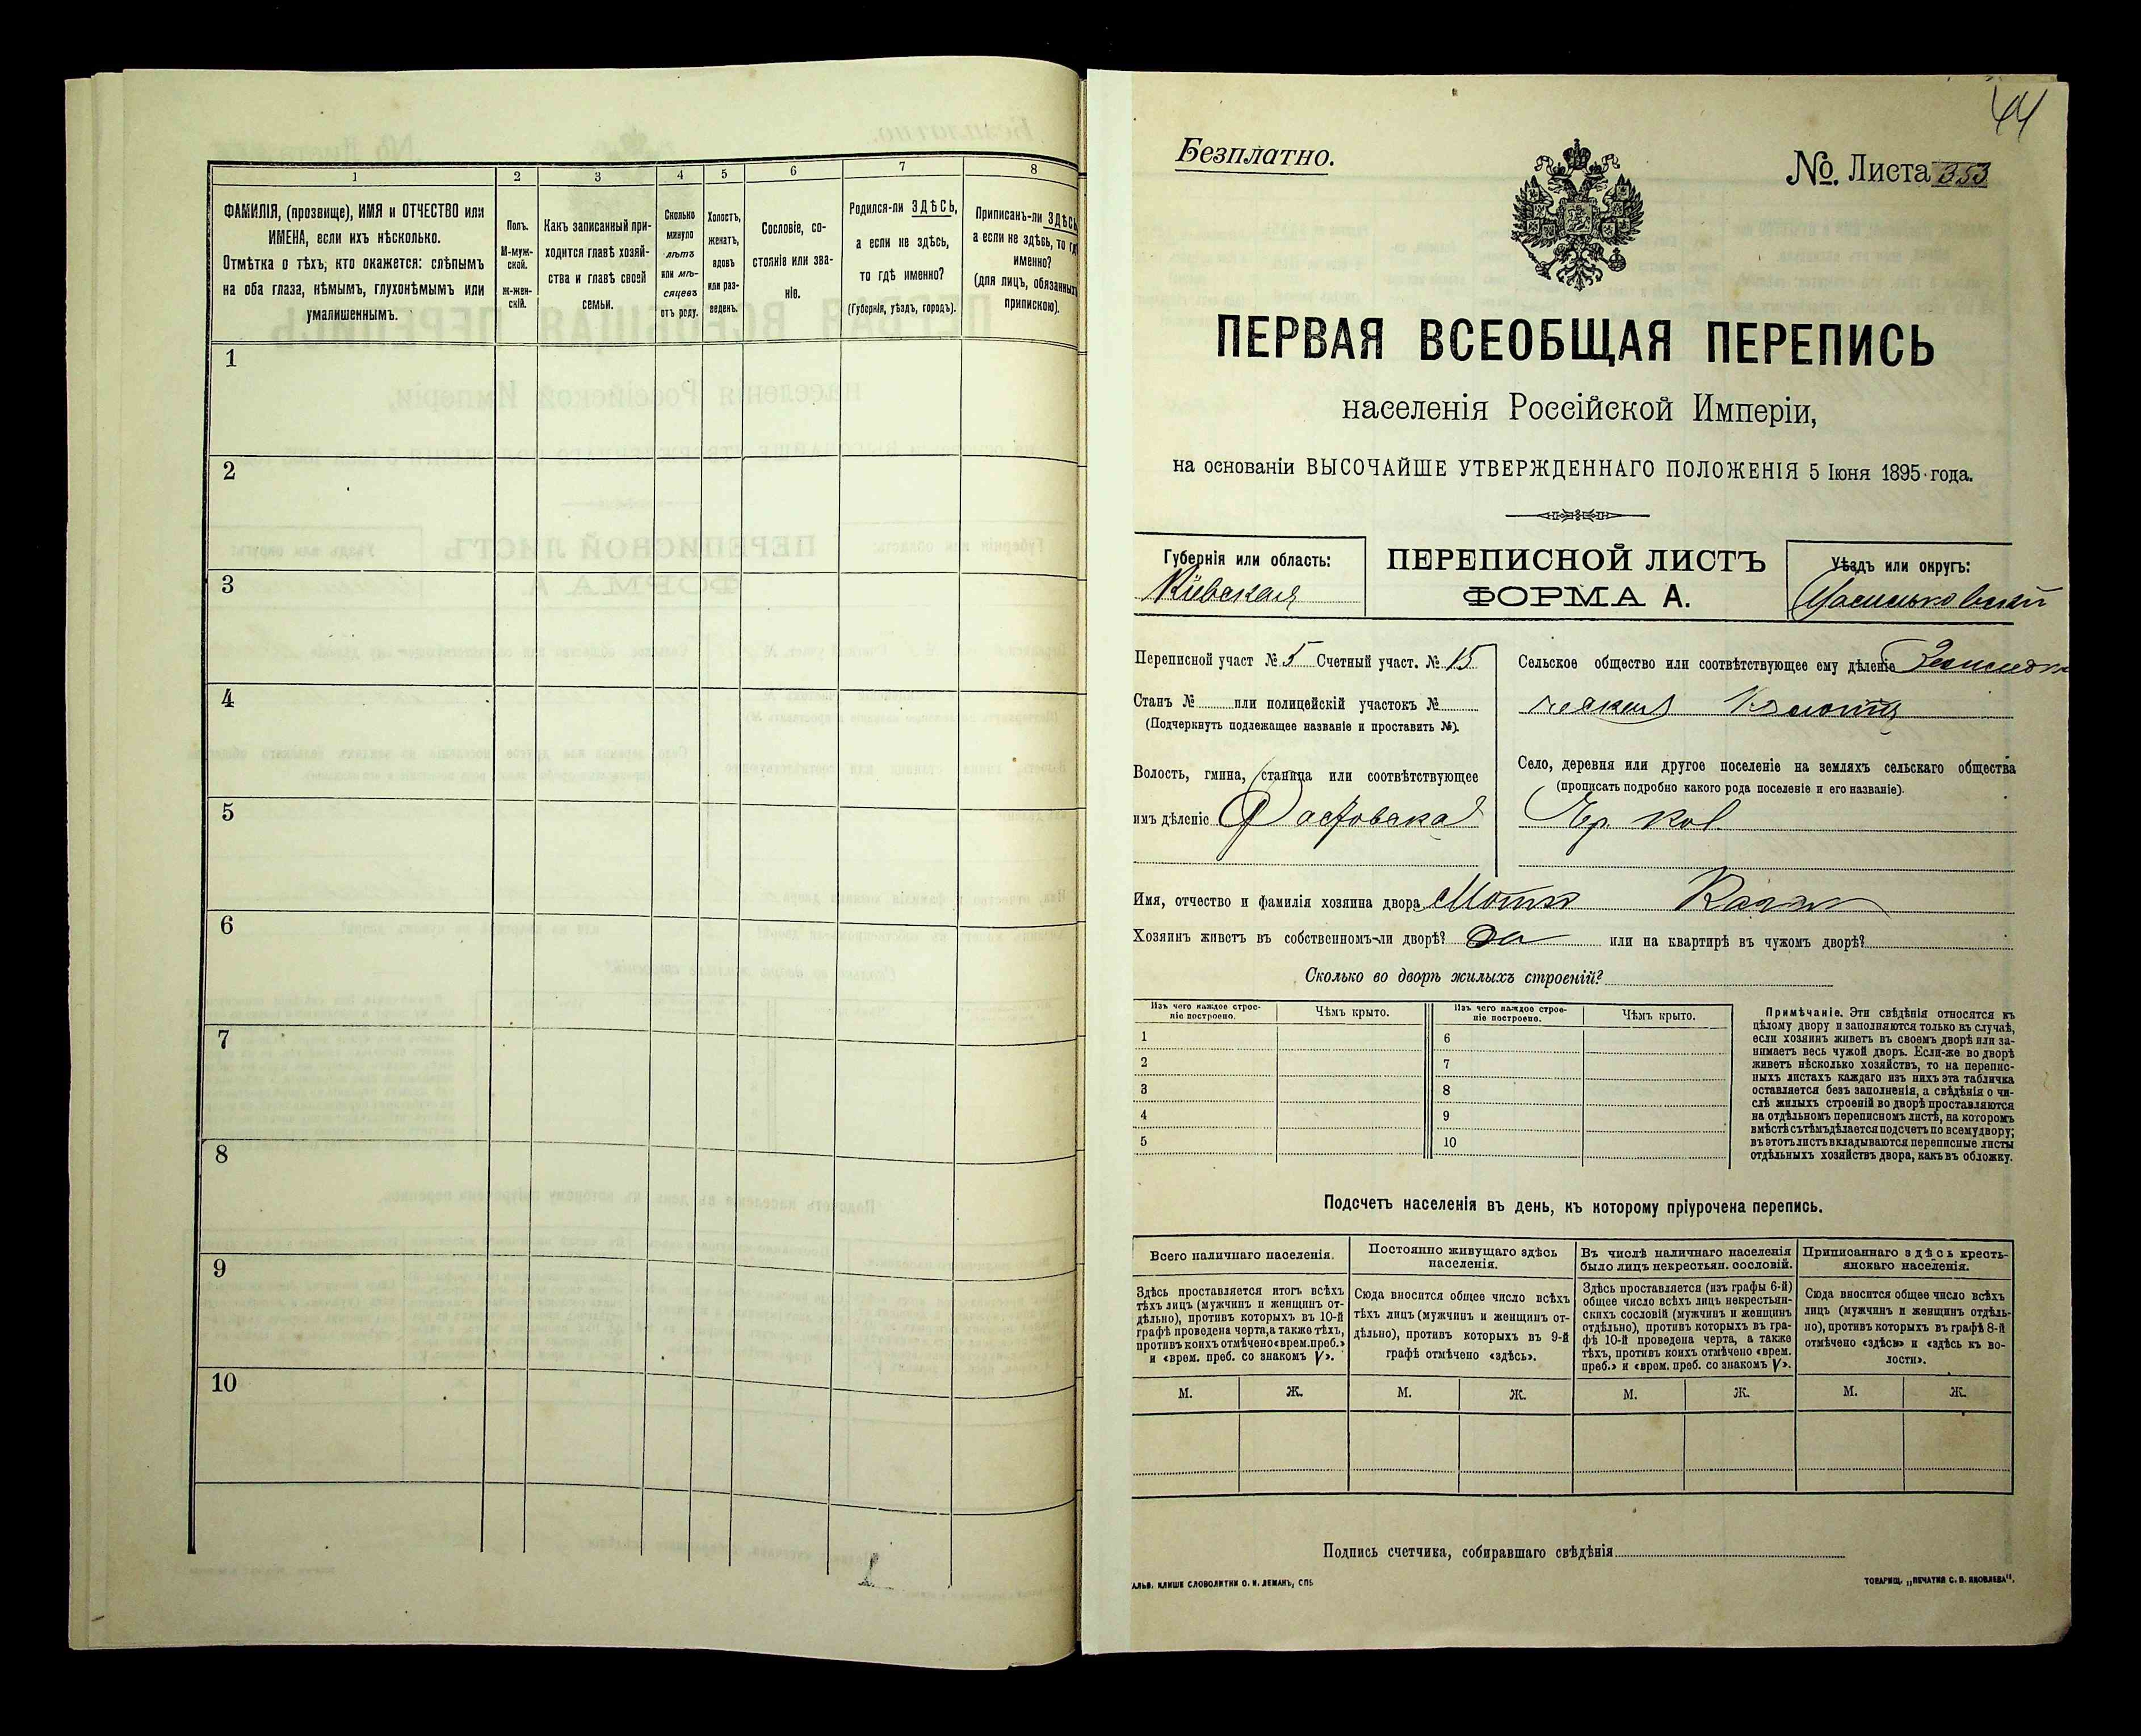 1
2
3
4
5
6
7
8
ФАМИЛІЯ, (прозвище), ИМЯ и ОТЧЕСТВО или
ИМЕНА, если ихъ нѣсколько.
Отмѣтка о тѣхъ, кто окажется: слѣпымъ
на оба глаза, нѣмымъ, глухонѣмымъ или
умалишеннымъ.
Полъ.
М-муж-
ской.
Ж-жен-
скій.
Какъ записанный при-
ходится главѣ хозяй-
ства и главѣ своей
семьи.
Сколько
минуло
лѣтъ
или мѣ-
сяцевъ
отъ роду.
Холостъ,
женатъ,
вдовъ
или раз-
веденъ.
Сословіе, со-
стояніе или зва-
ніе.
Родился-ли ЗДѢСЬ,
а если не здѣсь,
то гдѣ именно?
(Губернія, уѣздъ, городъ).
Приписанъ-ли ЗДѢСЬ,
а если не здѣсь, то гдѣ
именно?
(для лицъ, обязанныхъ
припискою).
1
2
3
4
5
6
7
8
9
10
44
Безплатно.
№. Листа 353
ПЕРВАЯ ВСЕОБЩАЯ ПЕРЕПИСЬ
населенія Россійской Имперіи,
на основаніи ВЫСОЧАЙШЕ УТВЕРЖДЕННАГО ПОЛОЖЕНІЯ 5 Іюня 1895 года.
Губернія или область:
Кіевская
ПЕРЕПИСНОЙ ЛИСТЪ
ФОРМА А.
Уѣздъ или округъ:
Васильковскій
Переписной участ № 5 Счетный участ. № 15
Станъ № или полицейскій участокъ №
(Подчеркнуть подлежащее названіе и проставить №).
Волость, гмина, станица или соотвѣтствующее
имъ дѣленіе Фастовская
Сельское общество или соотвѣтствующее ему дѣленіе
Село, деревня или другое поселеніе на земляхъ сельскаго общества
(прописать подробно какого рода поселеніе и его названіе).
Имя, отчество и фамилія хозяина двора
Хозяинъ живетъ въ собственномъ-ли дворѣ? да или на квартирѣ въ чужомъ дворѣ?
Сколько во дворѣ жилыхъ строеній?
Изъ чего каждое строе-
ніе построено.
Чѣмъ крыто.
Изъ чего каждое строе-
ніе построено.
Чѣмъ крыто.
1
2
3
4
5
6
7
8
9
10
Примѣчаніе. Эти свѣдѣнія относятся къ
цѣлому двору и заполняются только въ случаѣ,
если хозяинъ живетъ въ своемъ дворѣ или за-
нимаетъ весь чужой дворъ. Если-же во дворѣ
живетъ нѣсколько хозяйствъ, то на перепис-
ныхъ листахъ каждаго изъ нихъ эта табличка
оставляется безъ заполненія, а свѣдѣнія о чи-
слѣ жилыхъ строеній во дворѣ проставляются
на отдѣльномъ переписномъ листѣ, на которомъ
вмѣстѣ съ тѣмъ дѣлается подсчетъ по всему двору;
въ этотъ листъ вкладываются переписные листы
отдѣльныхъ хозяйствъ двора, какъ въ обложку.
Подсчетъ населенія въ день, къ которому пріурочена перепись.
Всего наличнаго населенія.
Здѣсь проставляется итогъ всѣхъ
тѣхъ лицъ (мужчинъ и женщинъ от-
дѣльно), противъ которыхъ въ 10-й
графѣ проведена черта, а также тѣхъ,
противъ коихъ отмѣчено «врем. преб.»
и «врем. преб. со знакомъ V».
Постоянно живущаго здѣсь
населенія.
Сюда вносится общее число всѣхъ
тѣхъ лицъ (мужчинъ и женщинъ от-
дѣльно), противъ которыхъ въ 9-й
графѣ отмѣчено «здѣсь».
Въ числѣ наличнаго населенія
было лицъ некрестьян. сословій.
Здѣсь проставляется (изъ графы 6-й)
общее число всѣхъ лицъ некрестьян-
скихъ сословій (мужчинъ и женщинъ
отдѣльно), противъ которыхъ въ гра-
фѣ 10-й проведена черта, а также
тѣхъ, противъ коихъ отмѣчено «врем.
преб.» и «врем. преб. со знакомъ V».
Приписаннаго здѣсь кресть-
янскаго населенія.
Сюда вносится общее число всѣхъ
лицъ (мужчинъ и женщинъ отдѣль-
но), противъ которыхъ въ графѣ 8-й
отмѣчено «здѣсь» и «здѣсь къ во-
лости».
М. Ж. М. Ж. М. Ж. М. Ж.
Подпись счетчика, собиравшаго свѣдѣнія
КЛИШЕ СЛОВОЛИТНИ О. И. ЛЕМАНЪ, СПБ
ТОВАРИЩ. „ПЕЧАТНЯ С. П. ЯКОВЛЕВА".